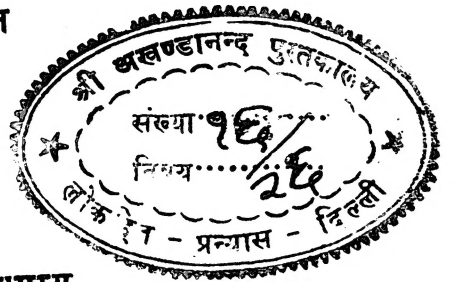 श्री अखण्डानन्द पुस्तकालय
संख्या १६/२६
विषय
लोक - प्रन्यास - दिल्ली